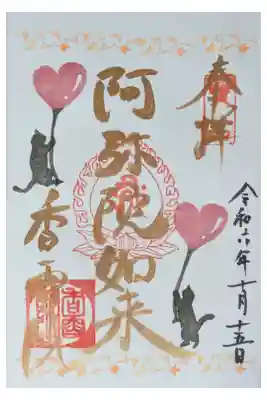 奉拝
令和六年十月十五日
阿弥陀如来
香